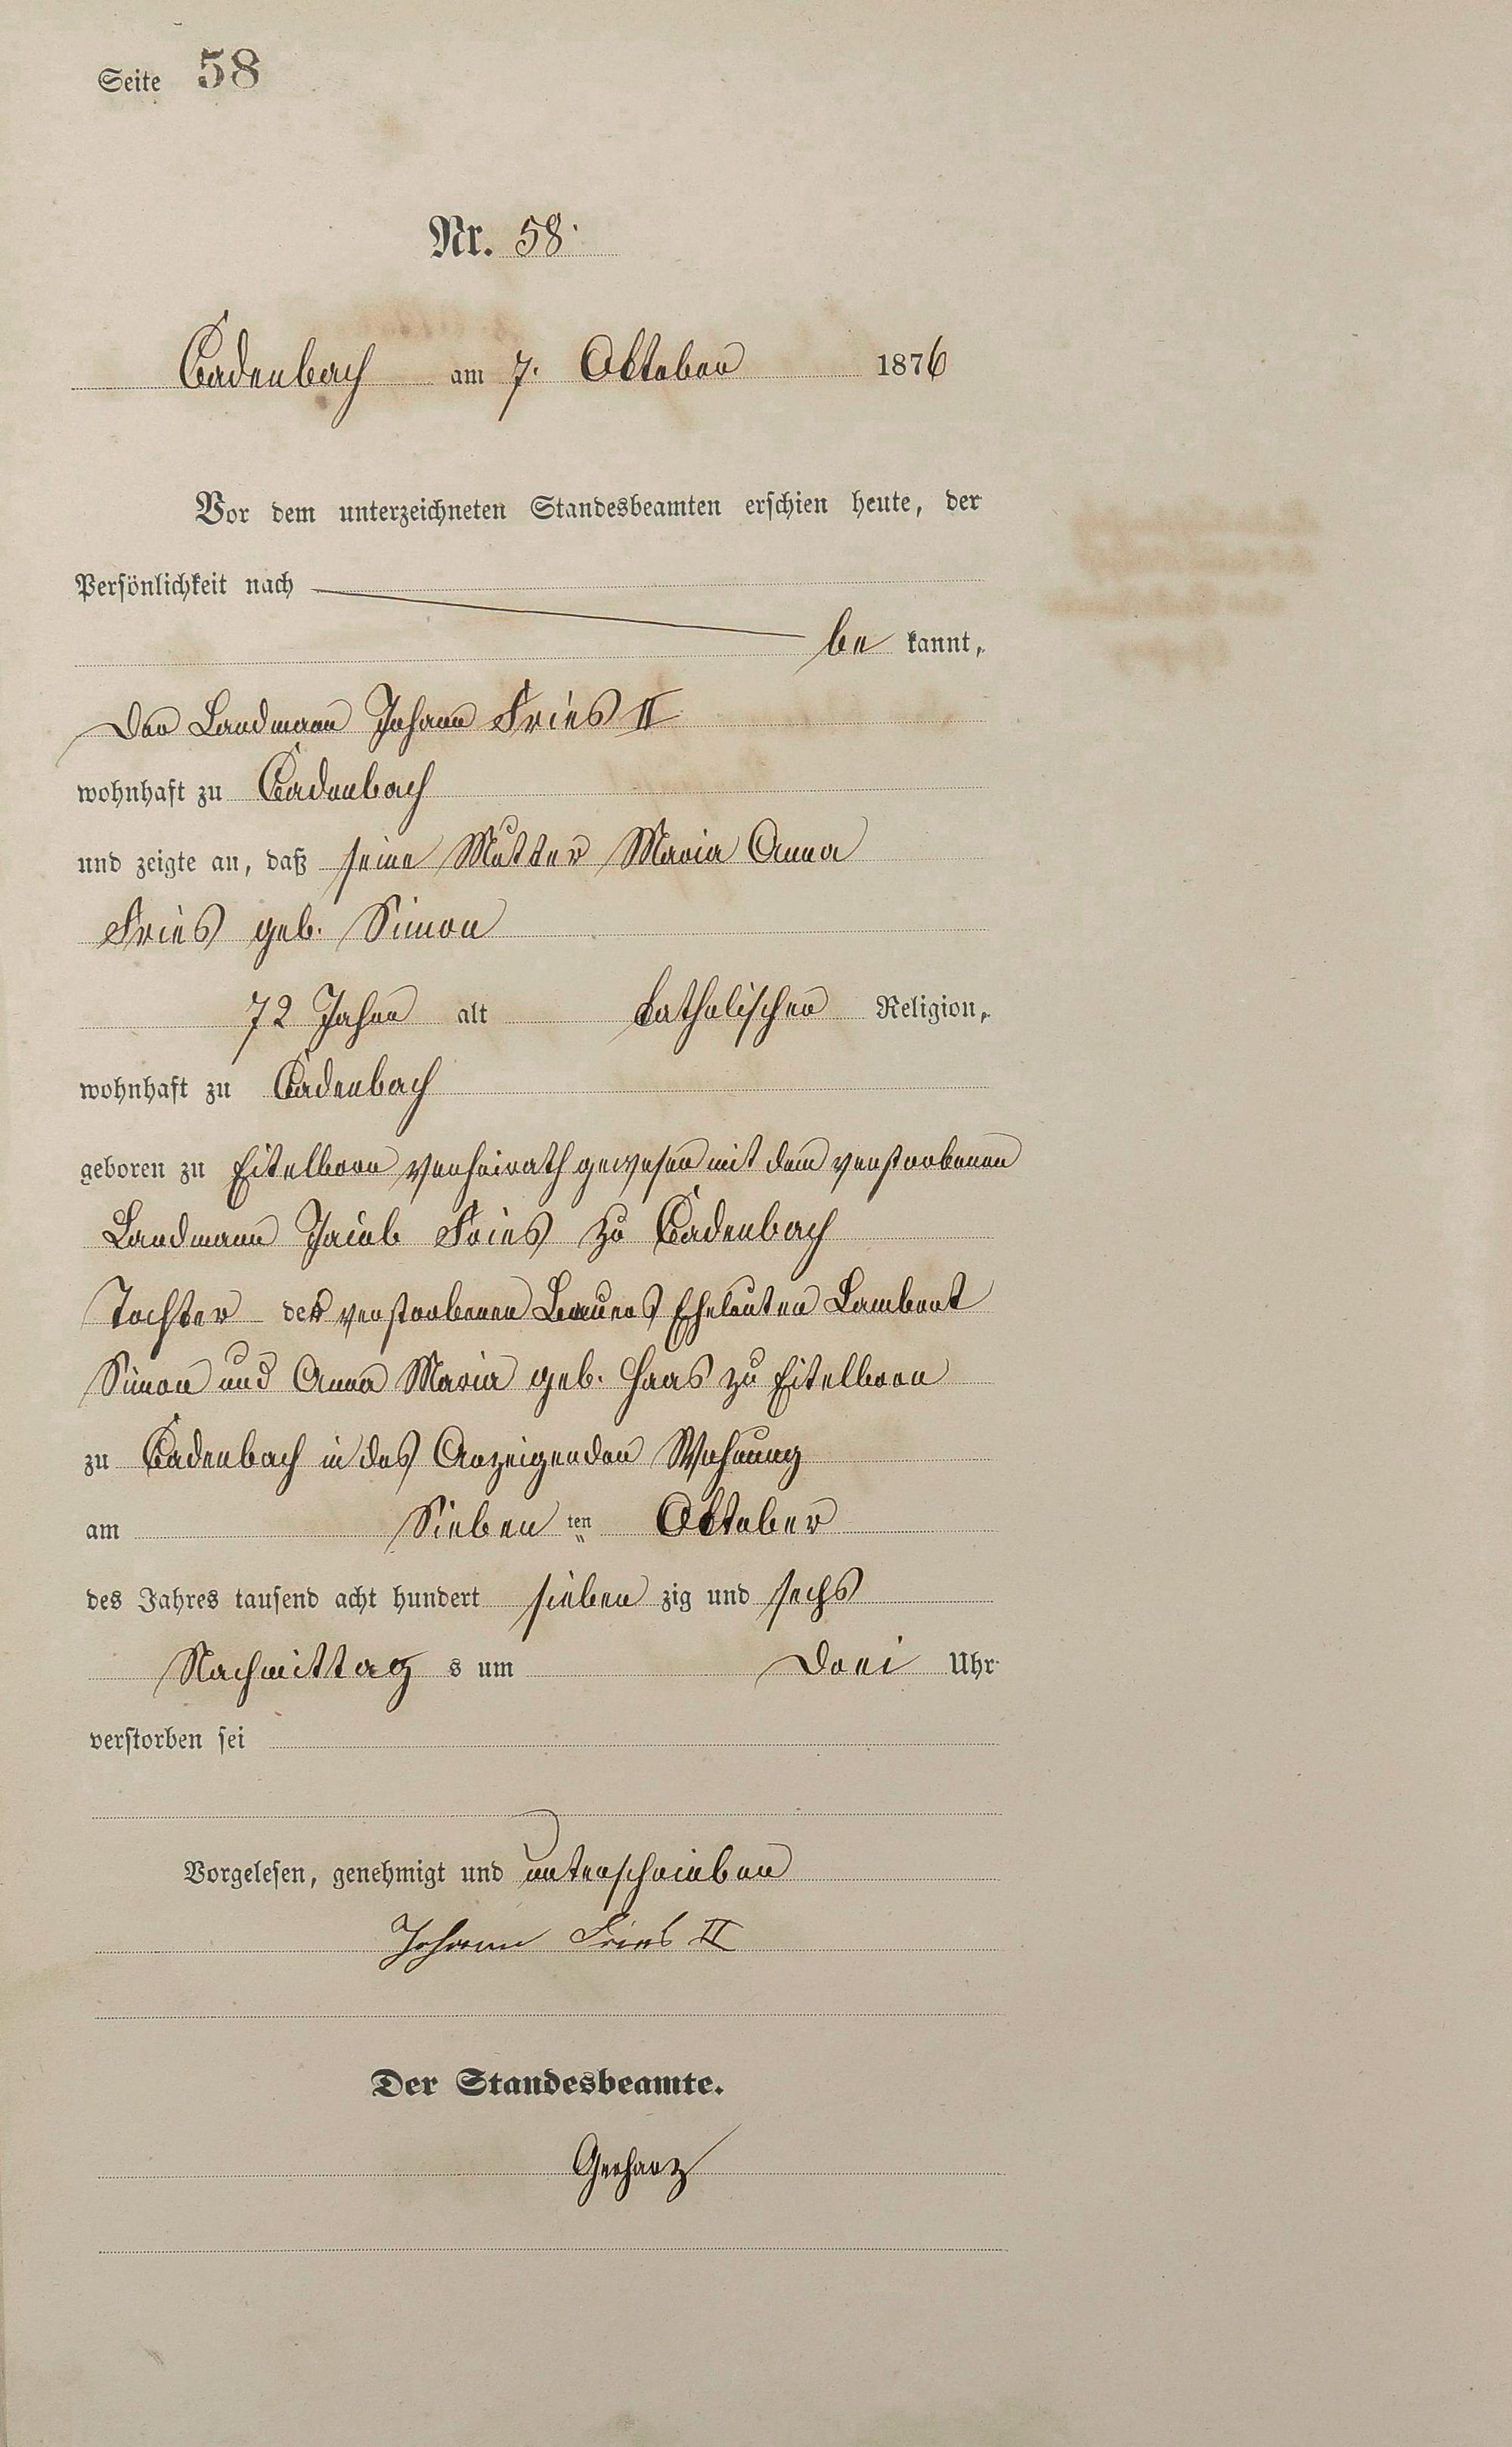 Seite 58
Nr. 58.
Cadenbach am 7. Oktober 1876
Vor dem unterzeichneten Standesbeamten erschien heute, der
Persönlichkeit nach
be kannt,
der Landmann Johann Fries II
wohnhaft zu Cadenbach
und zeigte an, daß seine Mutter Maria Anna
Fries geb. Simon
72 Jahre alt katholischer Religion,
wohnhaft zu Cadenbach
geboren zu Eitelborn verheirath gewesen mit dem verstorbenen
Landmann Jacob Fries zu Cadenbach
Tochter der verstorbenen Bauers Eheleuten Lambert
Simon und Anna Maria geb. Haas zu Eitelborn
zu Cadenbach in des Anzeigenden Wohnung
am Sieben ten Oktober
des Jahres tausend acht hundert sieben zig und sechs
Nachmittag s um Drei Uhr
verstorben sei
Vorgelesen, genehmigt und unterschrieben
Johann Fries II
Der Standesbeamte.
Gerharz